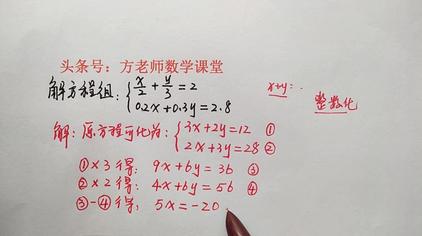 头条号：方老师数学课堂
解方程组：{x/2 + y/3 = 2
0.2x+0.3y=2.8
x+y=..
整数化
解：原方程可化为：{3x+2y=12 ①
2x+3y=28 ②
①×3得：9x+6y=36 ③
②×2得：4x+6y=56 ④
③-④得：5x=-20